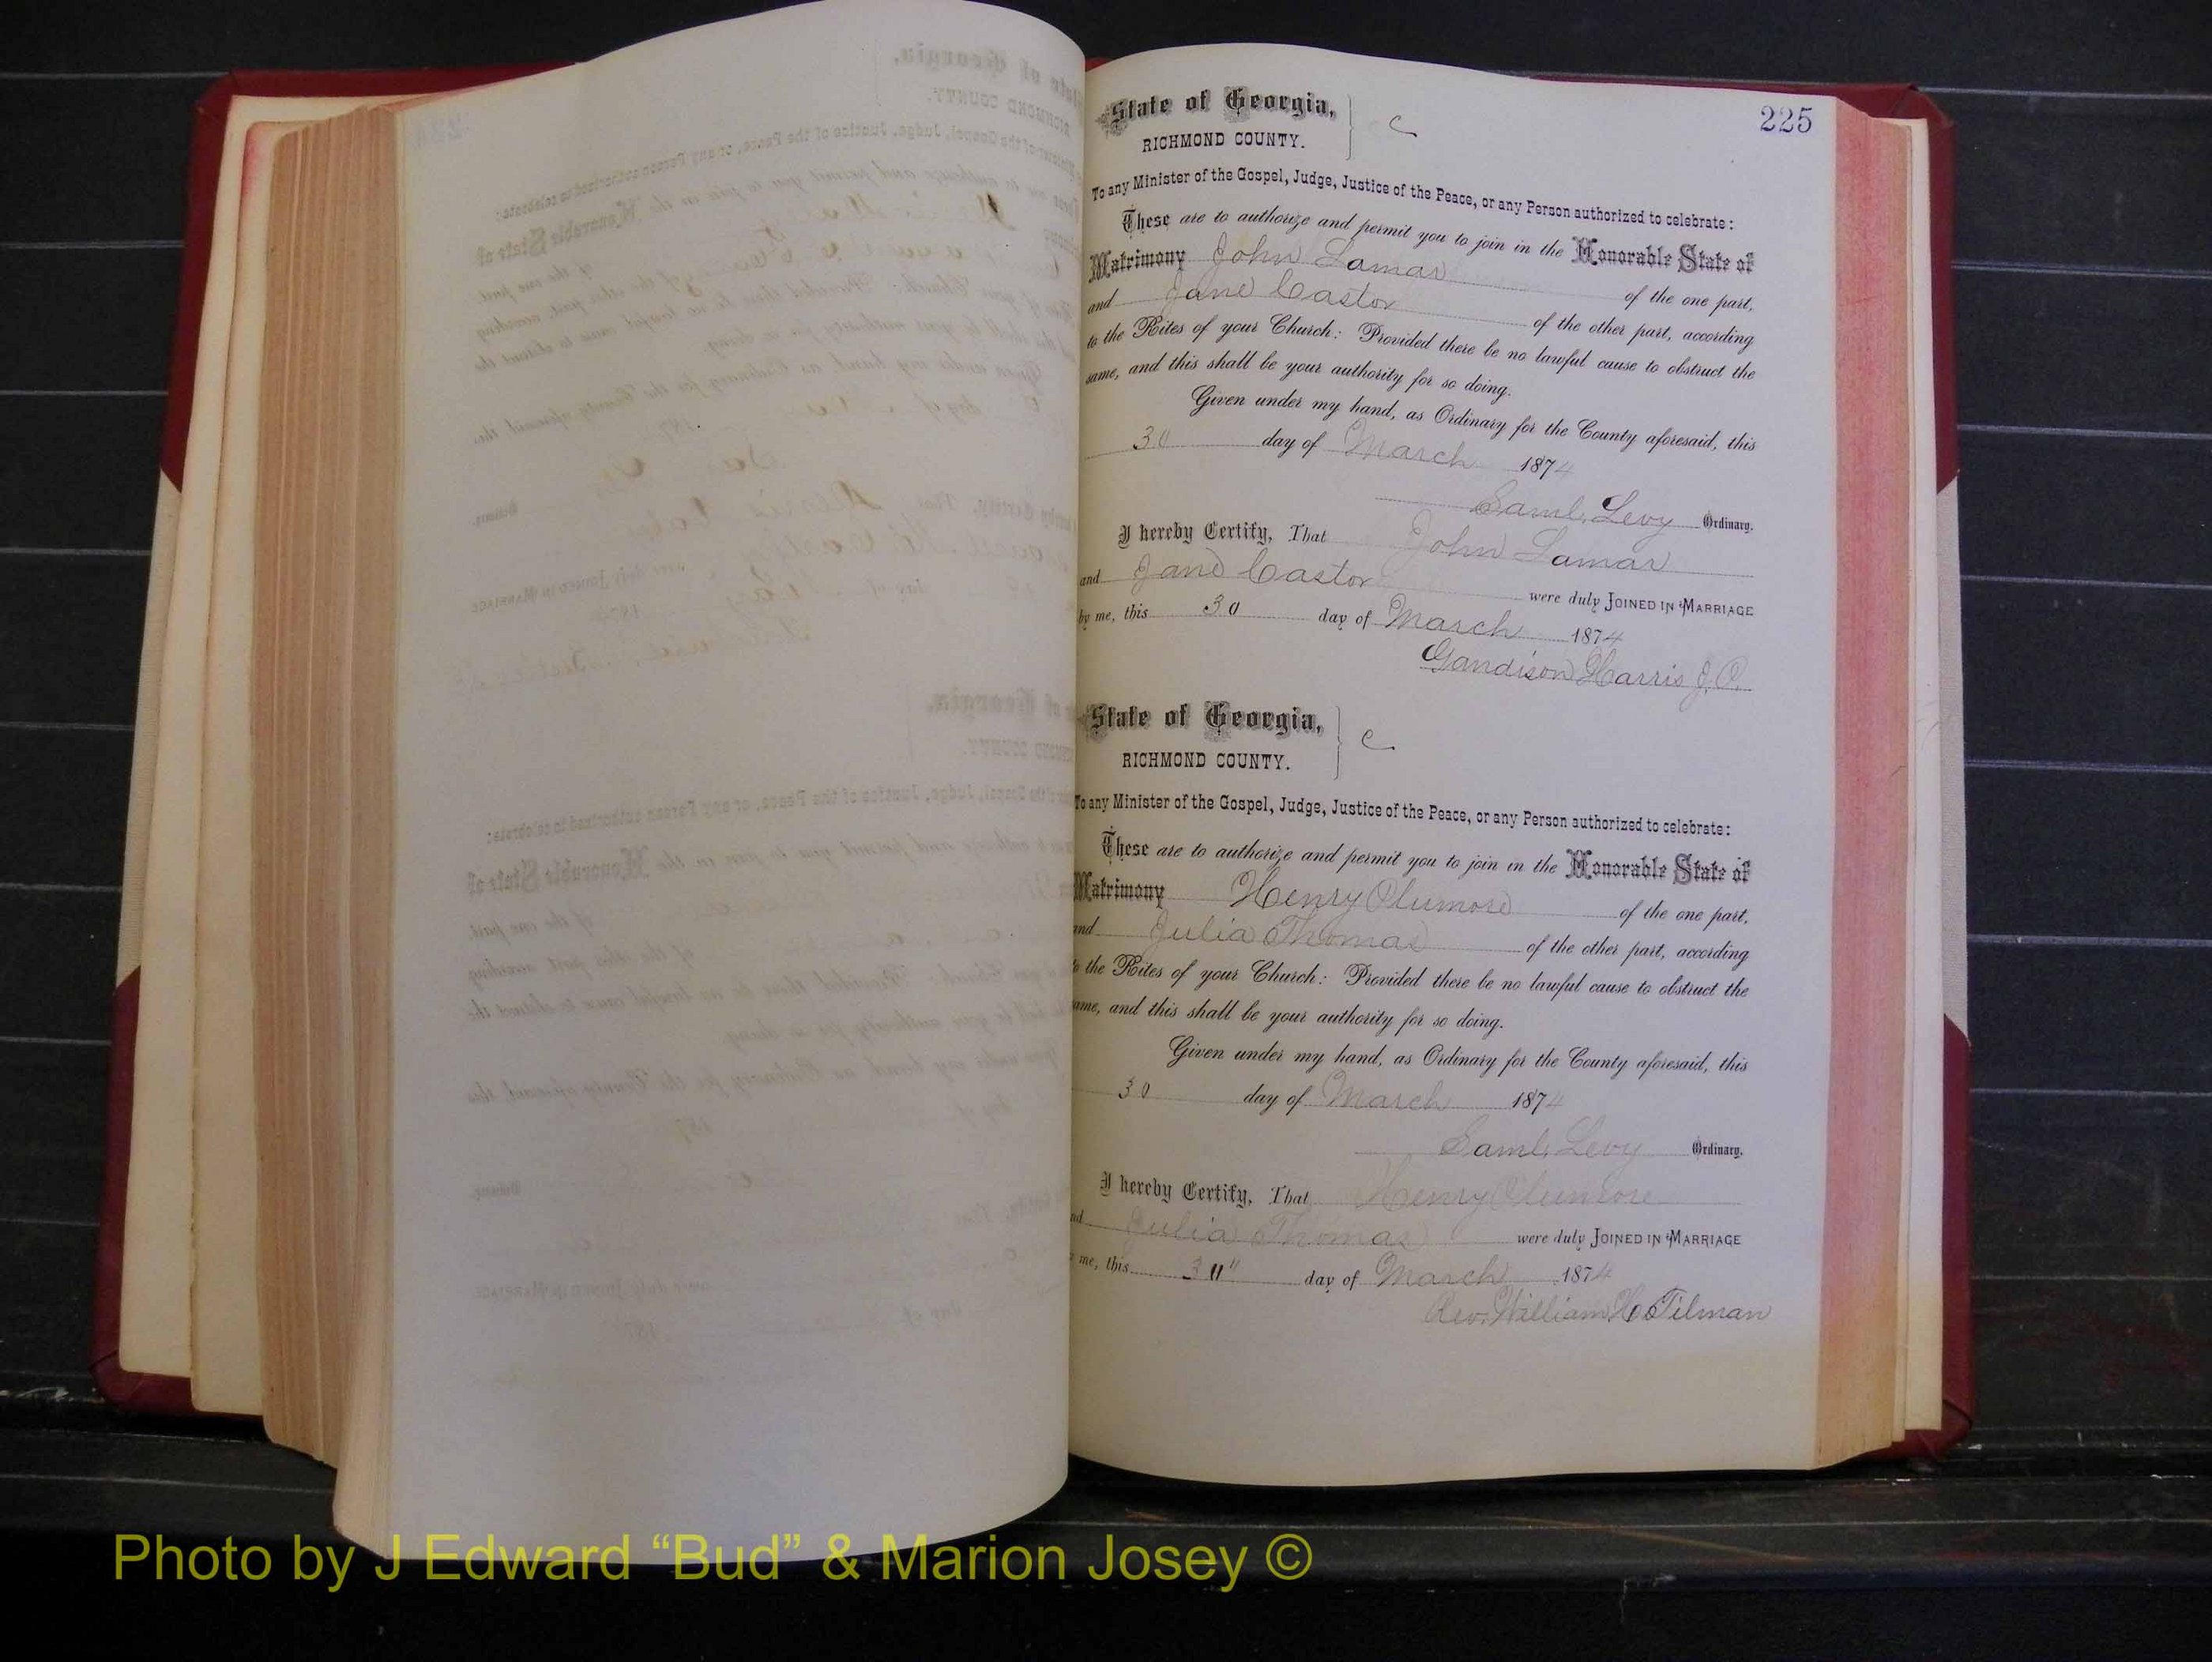 225
State of Georgia,
RICHMOND COUNTY.
C
To any Minister of the Gospel, Judge, Justice of the Peace, or any Person authorized to celebrate:
These are to authorize and permit you to join in the Honorable State of
Matrimony John Lamar of the one part,
and Jane Castor of the other part, according
to the Rites of your Church: Provided there be no lawful cause to obstruct the
same, and this shall be your authority for so doing.
Given under my hand, as Ordinary for the County aforesaid, this
30 day of March 1874
Saml. Levy Ordinary.
I hereby Certify, That John Lamar
and Jane Castor were duly JOINED IN MARRIAGE
by me, this 30 day of March 1874
Grandison Harris J.P.
State of Georgia,
RICHMOND COUNTY.
C
To any Minister of the Gospel, Judge, Justice of the Peace, or any Person authorized to celebrate:
These are to authorize and permit you to join in the Honorable State of
Matrimony Henry Plumore of the one part,
and Julia Thomas of the other part, according
to the Rites of your Church: Provided there be no lawful cause to obstruct the
same, and this shall be your authority for so doing.
Given under my hand, as Ordinary for the County aforesaid, this
30 day of March 1874
Saml. Levy Ordinary.
I hereby Certify, That Henry Plumore
and Julia Thomas were duly JOINED IN MARRIAGE
me, this 30" day of March 1874
Rev. William H Tilman
Photo by J Edward “Bud” & Marion Josey ©